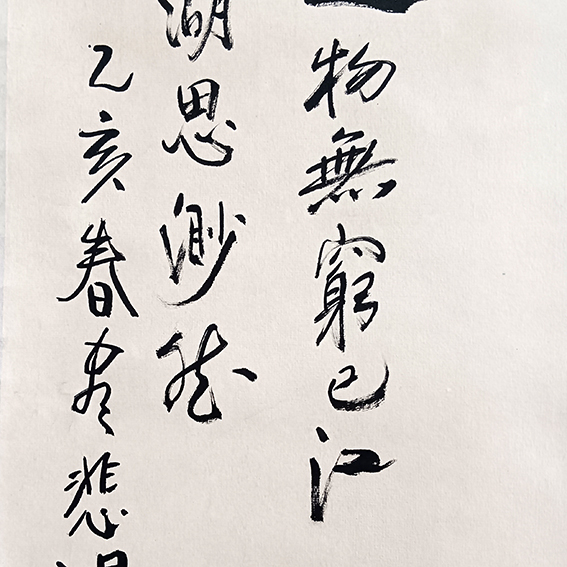 物無窮已江
湖思渺然
乙亥春尽悲